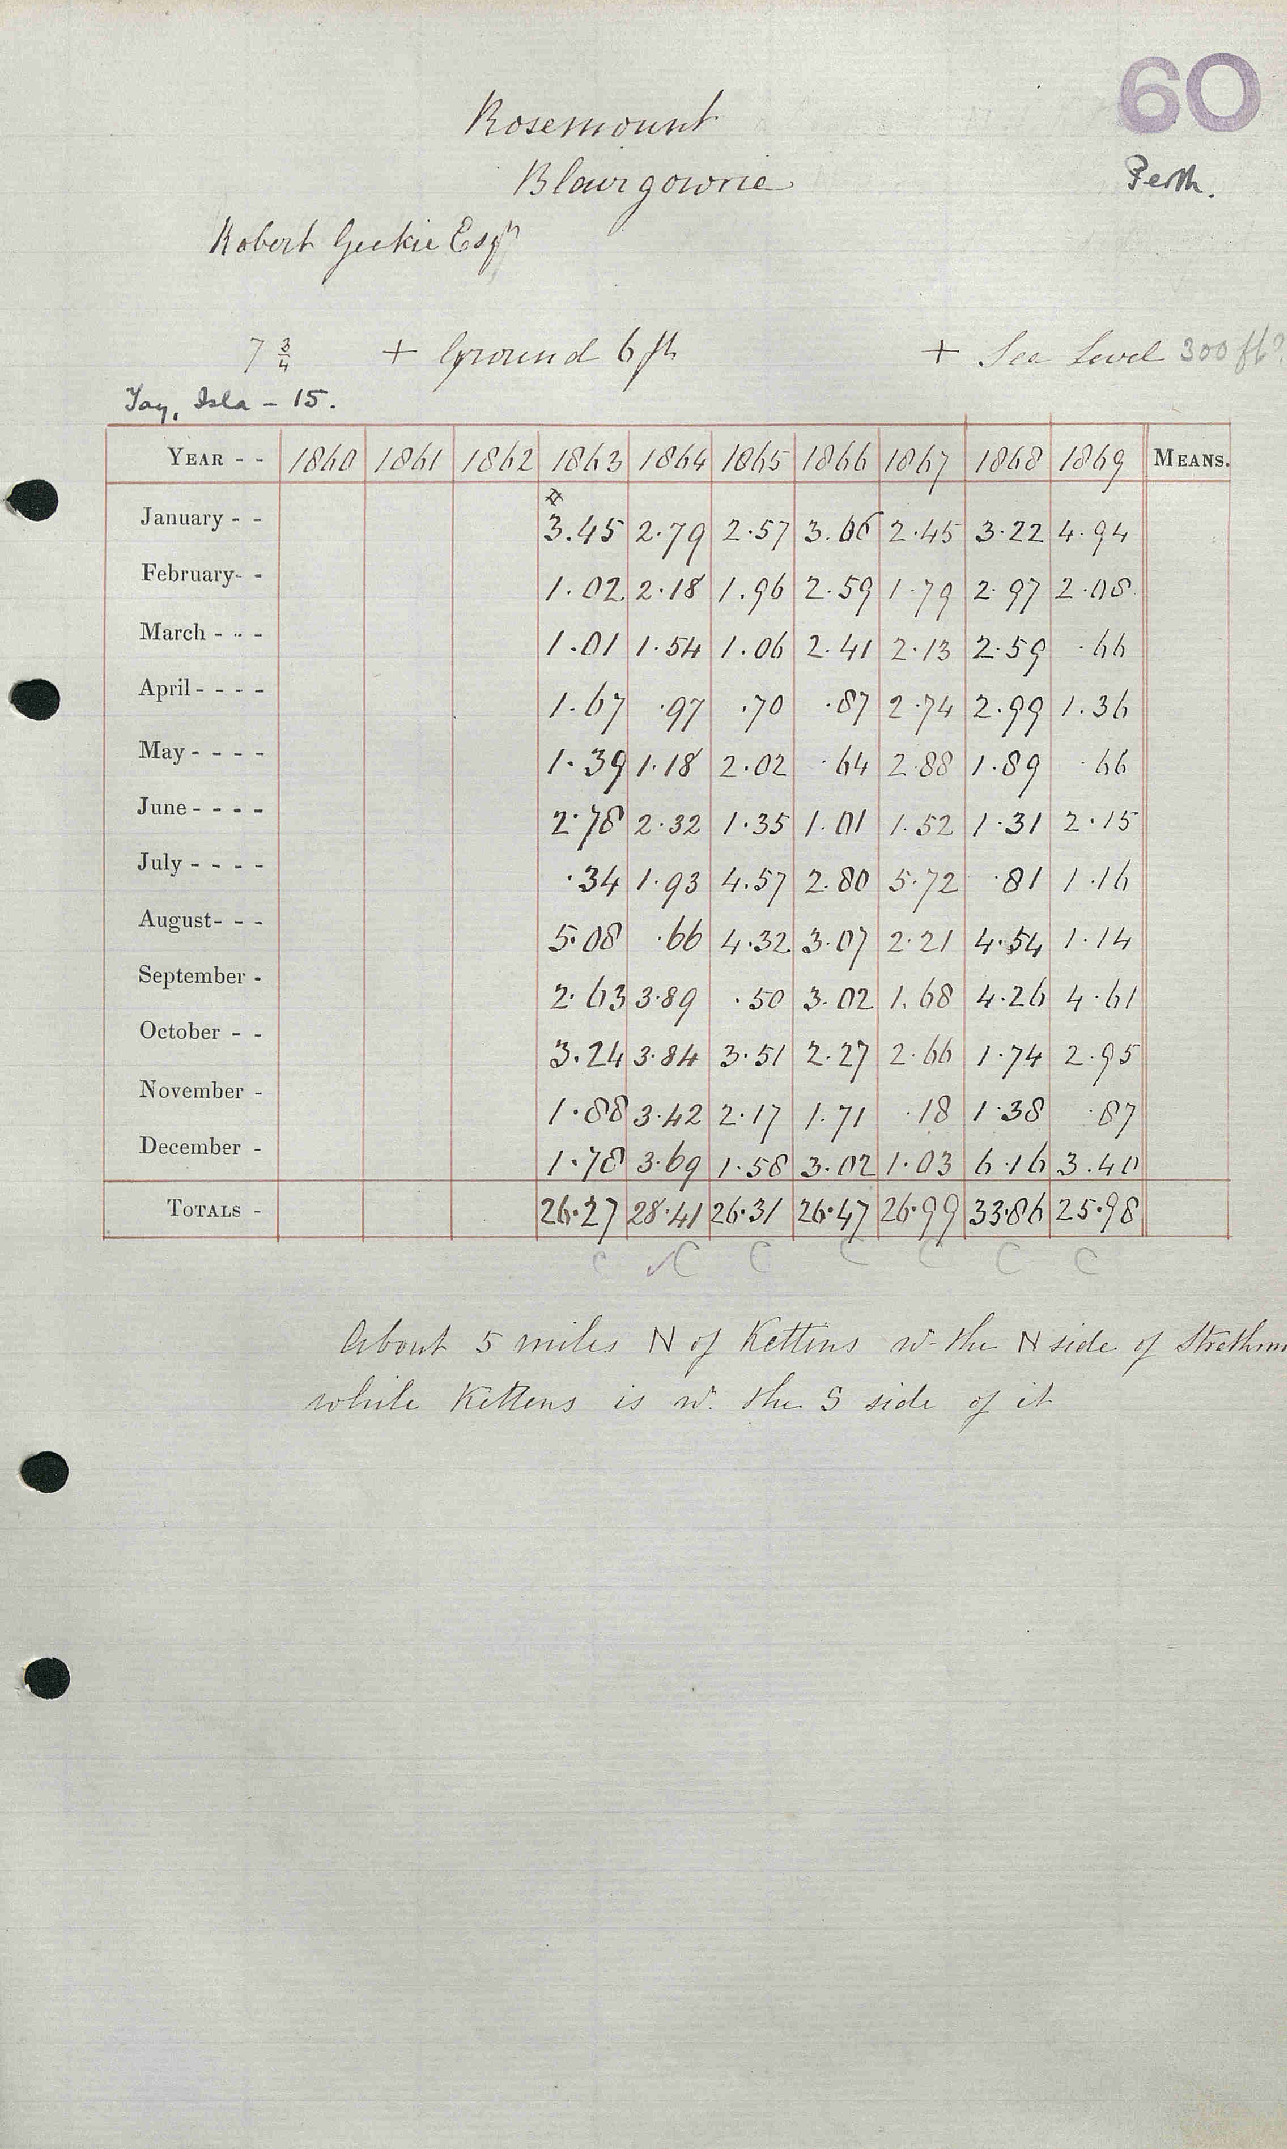 60
Rosemount
Blairgowrie
Perth.
Robert Geekie Esqr
7 3/4 + Ground 6 ft + Sea Level 300 ft?
Tay, Isla - 15.
YEAR - - 1860 1861 1862 1863 1864 1865 1866 1867 1868 1869 MEANS.
January - - 3.45 2.79 2.57 3.06 2.45 3.22 4.94
February - - 1.02 2.18 1.96 2.59 1.79 2.97 2.08
March - - - 1.01 1.54 1.06 2.41 2.13 2.59 .66
April - - - - 1.67 .97 .70 .87 2.74 2.99 1.36
May - - - - 1.39 1.18 2.02 .64 2.88 1.89 .66
June - - - - 2.78 2.32 1.35 1.01 1.52 1.31 2.15
July - - - - .34 1.93 4.57 2.80 5.72 .81 1.16
August - - - 5.08 .66 4.32 3.07 2.21 4.54 1.14
September - 2.63 3.89 .50 3.02 1.68 4.26 4.61
October - - 3.24 3.84 3.51 2.27 2.66 1.74 2.95
November - 1.88 3.42 2.17 1.71 .18 1.38 .87
December - 1.78 3.69 1.58 3.02 1.03 6.16 3.40
TOTALS - 26.27 28.41 26.31 26.47 26.99 33.86 25.98
c C C C C C C
About 5 miles N of Kettins the N side of
while Kettens is the S side of it